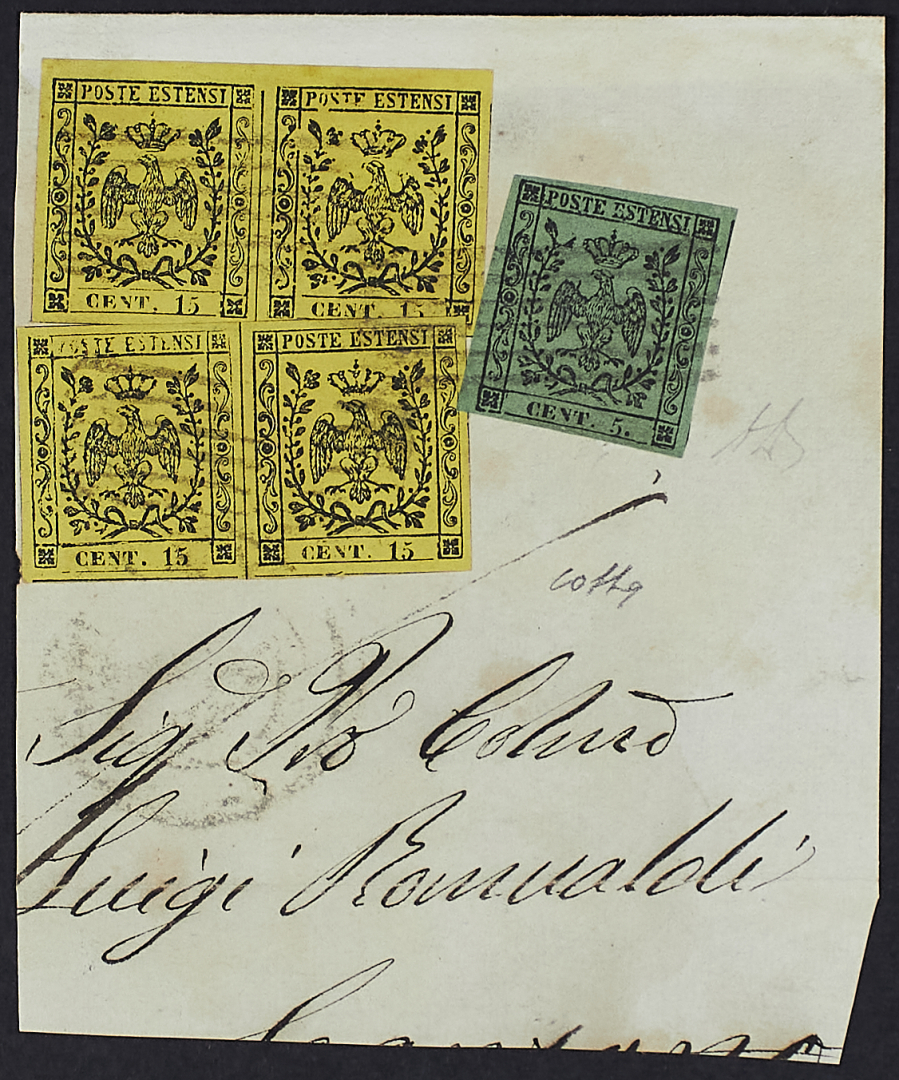 POSTE ESTENSI POSTE ESTENSI
CENT. 15 CENT. 15
POSTE ESTENSI
CENT. 5.
POSTE ESTENSI POSTE ESTENSI
CENT. 15 CENT. 15
Sig
Luigi Romualdi